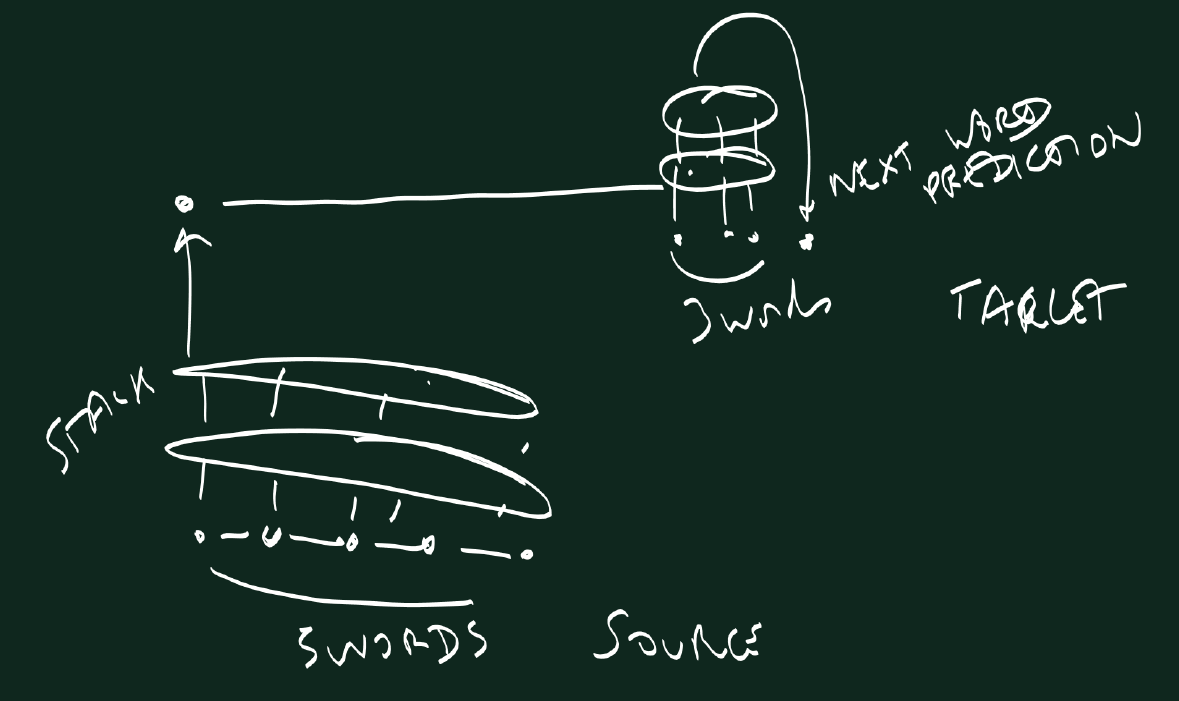 NEXT WORD
PREDICTION
3 words
TARGET
STACK
5 WORDS
SOURCE